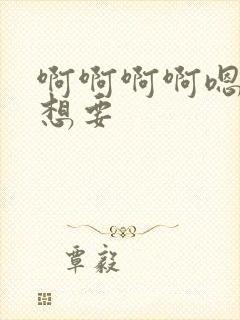 啊啊啊啊嗯
想要
覃毅